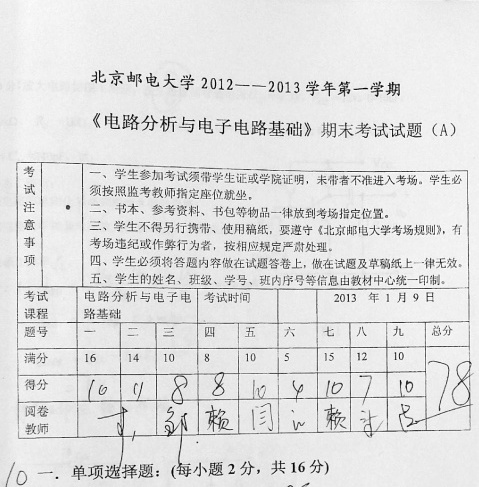 北京邮电大学 2012——2013 学年第一学期
《电路分析与电子电路基础》期末考试试题（A）
考试注意事项
一、学生参加考试须带学生证或学院证明，未带者不准进入考场。学生必
须按照监考教师指定座位就坐。
二、书本、参考资料、书包等物品一律放到考场指定位置。
三、学生不得另行携带、使用稿纸，要遵守《北京邮电大学考场规则》，有
考场违纪或作弊行为者，按相应规定严肃处理。
四、学生必须将答题内容做在试题答卷上，做在试题及草稿纸上一律无效。
五、学生的姓名、班级、学号、班内序号等信息由教材中心统一印制。
考试课程 电路分析与电子电路基础 考试时间 2013 年 1 月 9 日
题号 一 二 三 四 五 六 七 八 九 总分
满分 16 14 10 8 10 5 15 12 10
得分 10 8 8 10 4 10 7 10 78
阅卷教师 邹 赖 闫 赖
10 一．单项选择题：(每小题 2 分，共 16 分)